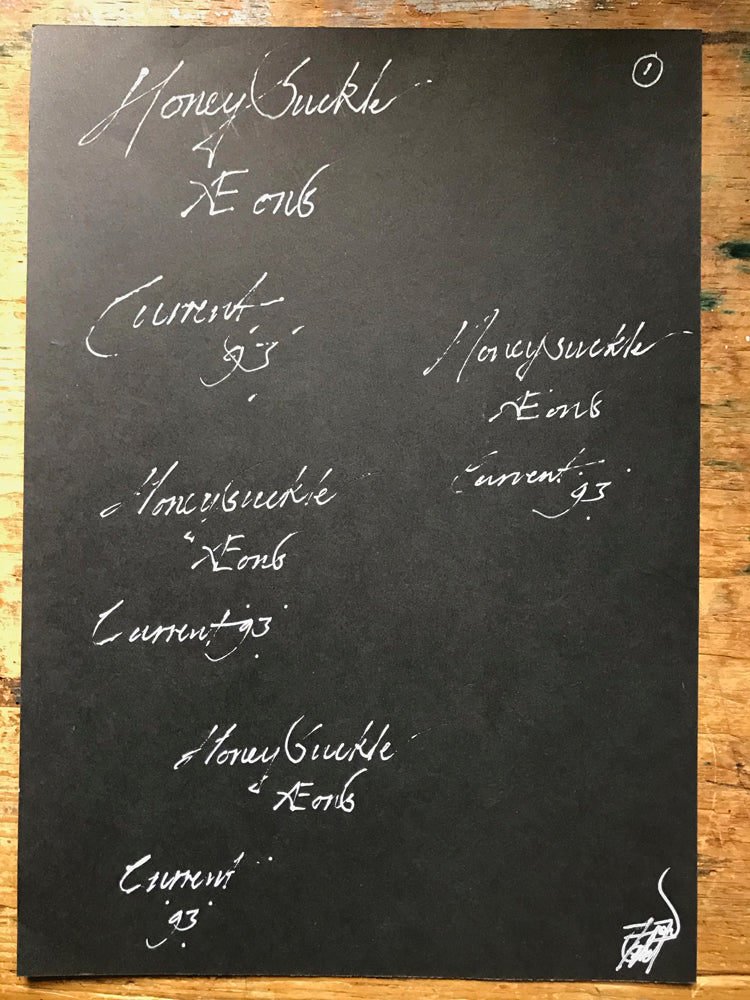 1
HoneySuckle
ÆONS
Current
93
Honeysuckle
ÆONS
Current 93
Honeysuckle
ÆONS
Current 93
HoneySuckle
ÆONS
Current
93